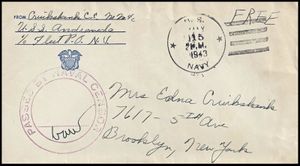 FROM Cruikshank C.C.
U.S.S. Andromeda
% Fleet P.O. N.Y.
U.S.
MAY
15
P.M.
1943
NAVY
FREE
PASSED BY NAVAL CENSOR
Mrs Edna Cruikshank
7617 - 5TH Ave
Brooklyn, New York